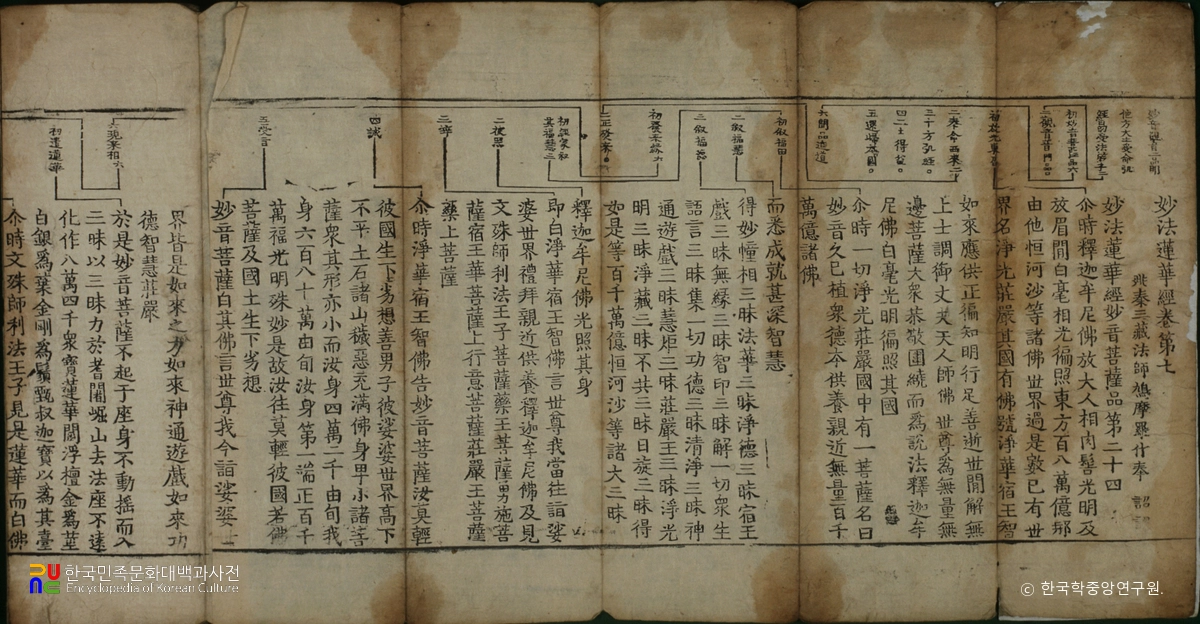 妙法蓮華經卷第七
姚秦三藏法師鳩摩羅什奉 詔
妙法蓮華經妙音菩薩品第二十四
尒時釋迦牟尼佛放大人相肉髻光明及
放眉閒白毫相光徧照東方百八萬億那
由他恒河沙等諸佛世界過是數已有世
界名淨光莊嚴其國有佛號淨華宿王智
如來應供正徧知明行足善逝世閒解無
上士調御丈夫天人師佛世尊爲無量無
邊菩薩大衆恭敬圍繞而爲說法釋迦牟
尼佛白毫光明徧照其國
尒時一切淨光莊嚴國中有一菩薩名曰
妙音久已植衆德夲供養親近無量百千
萬億諸佛
而悉成就甚深智慧
得妙幢相三昧法華三昧淨德三昧宿王
戲三昧無緣三昧智印三昧解一切衆生
語言三昧集一切功德三昧清淨三昧神
通遊戲三昧慧炬三昧莊嚴王三昧淨光
明三昧淨藏三昧不共三昧日旋三昧得
如是等百千萬億恒河沙等諸大三昧
釋迦牟尼佛光照其身
即白淨華宿王智佛言世尊我當往詣娑
婆世界禮拜親近供養釋迦牟尼佛及見
文殊師利法王子菩薩藥王菩薩勇施菩
薩宿王華菩薩上行意菩薩莊嚴王菩薩
藥上菩薩
尒時淨華宿王智佛告妙音菩薩汝莫輕
彼國生下劣想善男子彼娑婆世界高下
不平土石諸山穢惡充滿佛身卑小諸菩
薩衆其形亦小而汝身四萬二千由旬我
身六百八十萬由旬汝身第一端正百千
萬福光明殊妙是故汝往莫輕彼國若佛
菩薩及國土生下劣想
妙音菩薩白其佛言世尊我今詣娑婆
界皆是如來之力如來神通遊戲如來功
德智慧莊嚴
於是妙音菩薩不起于座身不動搖而入
三昧以三昧力於耆闍崛山去法座不遠
化作八萬四千衆寶蓮華閻浮檀金爲莖
白銀爲葉金剛爲鬚甄叔迦寶以爲其臺
尒時文殊師利法王子見是蓮華而白佛
한국민족문화대백과사전
Encyclopedia of Korean Culture
ⓒ 한국학중앙연구원.